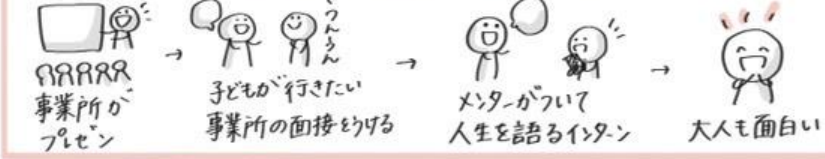 うんうん
事業所が
プレゼン
→
子どもが行きたい
事業所の面接をうける
→
メンターがついて
人生を語るインターン
→
大人も面白い